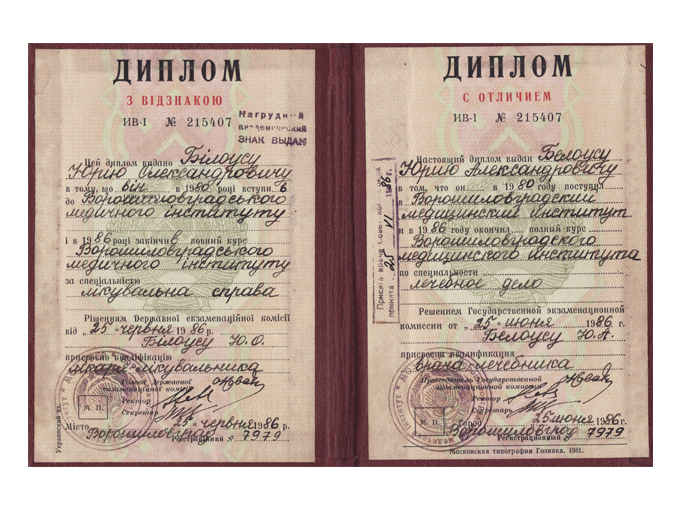 ДИПЛОМ
З ВІДЗНАКОЮ
ИВ-I № 215407
Нагрудный
академический
ЗНАК ВЫДАН
Цей диплом видано Білоусу
Юрію Олександровичу
в тому, що він в 1980 році вступив
до Ворошиловградського
медичного інституту
і в 1986 році закінчив повний курс
Ворошиловградського
медичного інституту
за спеціальністю
лікувальна справа
Рішенням Державної екзаменаційної комісії
від „25" червня 1986 р.
Білоусу Ю.О.
присвоєно кваліфікацію
лікаря-лікувальника
Голова Державної
екзаменаційної комісії
Ректор
Секретар
М. П.
25 червня 1986 р.
Місто Ворошиловград
Реєстраційний № 7979
Украинский яз.
ДИПЛОМ
С ОТЛИЧИЕМ
ИВ-I № 215407
Настоящий диплом выдан Белоусу
Юрию Александровичу
в том, что он в 1980 году поступил
в Ворошиловградский
медицинский институт
и в 1986 году окончил полный курс
Ворошиловградского
медицинского института
по специальности
лечебное дело
Решением Государственной экзаменационной
комиссии от „25" июня 1986 г.
Белоусу Ю.А.
присвоена квалификация
врача-лечебника
Председатель Государственной
экзаменационной комиссии
Ректор
Секретарь
М. П.
Город 25 июня 1986
Ворошиловград
Регистрационный № 7979
Московская типография Гознака. 1981.
Присяга врача
принята 25 VI 1986г.